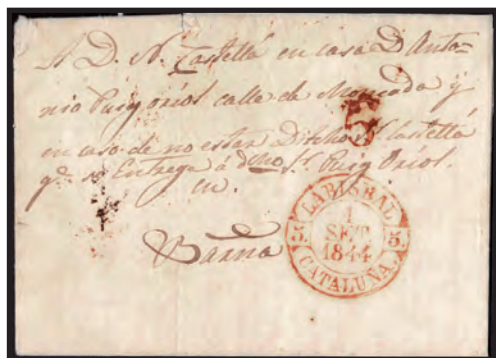 A D. N. Castellá en casa D. Anto=
nio Puig Oriol calle de Moncada y
en caso de no estar Dicho Sr. Castellá
qe. se Entrega á dcho Sr. Puig Oriol.
en.
Barna
LABISBAL
1
SET
1844
5 5
CATALUÑA.